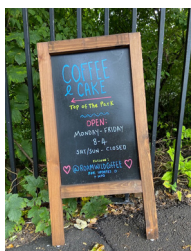 COFFEE
& CAKE
Top of The Park
OPEN:
MONDAY-FRIDAY
8-4
SAT/SUN - CLOSED